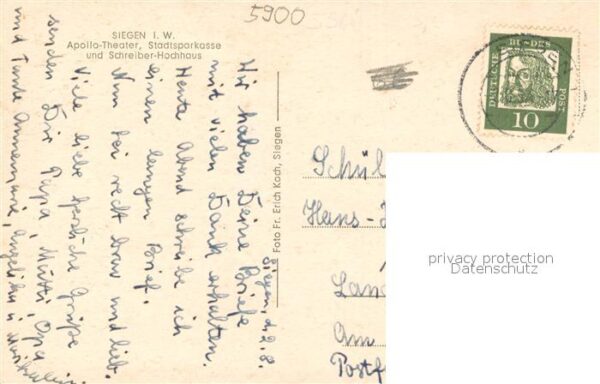 5900
SIEGEN I. W.
Apollo-Theater, Stadtsparkasse
und Schreiber-Hochhaus
Siegen, d. 2.8.
Wir haben Deine Briefe
mit vielen Dank erhalten.
Heute Abend schreibe ich
einen langen Brief.
Nun sei recht brav und lieb.
Viele liebe herzliche Grüße
senden Dir Papa, Mutti, Opa
und Tante Annemarie, Angelika u.
Foto Fr. Erich Koch, Siegen
DEUTSCHE BUNDESPOST
10
Schül
Hans-
Land
Am
Postf
privacy protection
Datenschutz